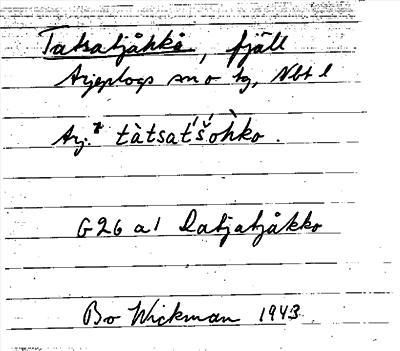 Tatsatjåkkå, fjäll
Arjeplogs sn o tg, Nbt l
Arj. tàtsat́'šohko.
G26 a1 Datjatjåkko
Bo Wickman 1943